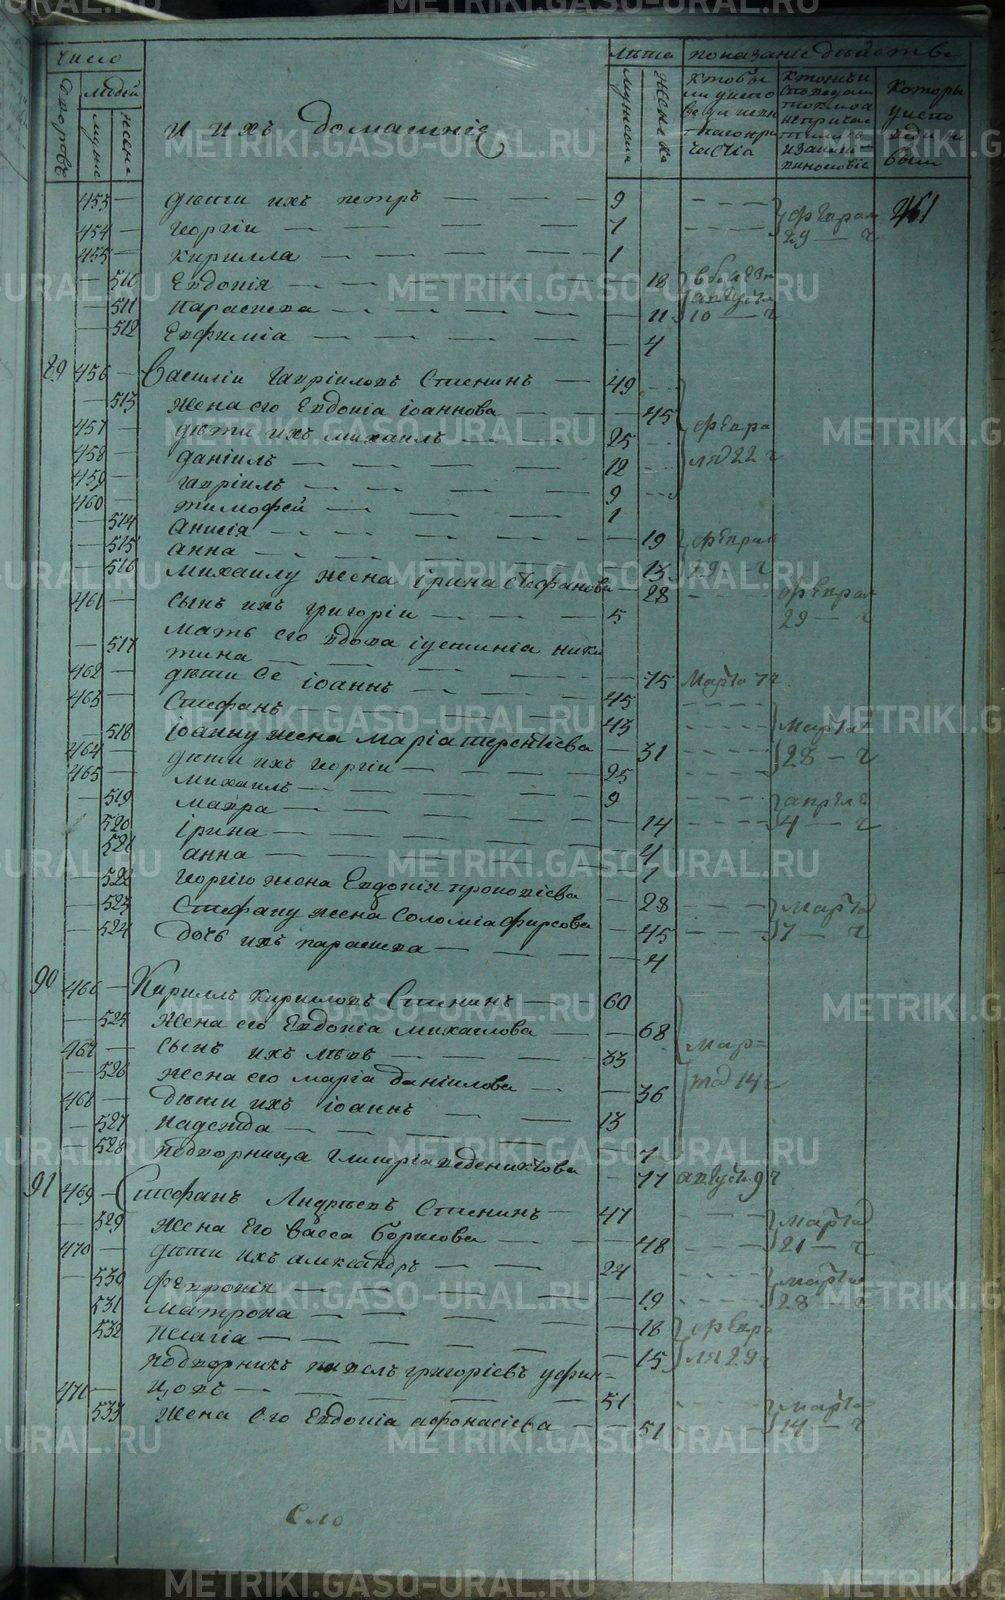 число
лѣта показаніе дѣйства
дворовъ людей
мужс женс
и ихъ домашнія
мужеска женска
которы
были
461
453 — дѣти ихъ петръ — 9
454 — георгіи — 1 февраля
29 — ч
455 — кирилла — 1
— 510 Евдокія — 18
— 511 Параскева — 11 10 — ч
— 512 Евфиміа — 4
89 456 — Василіи Гавріиловъ Стенинъ — 49
— 513 жена его Евдокіа іоаннова — 45
457 — дѣти ихъ михаилъ — 25 февра
458 — даніилъ — 12 ля 22 ч
459 — гавріилъ — 9
460 — тимофей — 1
— 514 Анисія — 19 февраля
— 515 анна — 13 29 — ч
— 516 михаилу жена ірина стефанова — 28 февраля
461 — сынъ ихъ григоріи — 5 29 — ч
мать его вдова іустиніа ники
— 517 тина — 75 Марта 7 ч
462 — дѣти Ее іоаннъ — 45
463 — Стефанъ — 43 Марта
— 518 іоанну жена маріа терентіева — 31 28 — ч
464 — дѣти ихъ георгіи — 25
465 — михаилъ — 9
— 519 мавра — 14 апреля
4 — ч
— 520 ірина — 4
— 521 анна — 1
— 522 георгію жена Евдокія прокопіева — 28 Марта
— 523 Стефану жена Соломіа фирсова — 45 7 — ч
— 524 дочь ихъ параскева — 4
90 466 — Кириллъ Кириловъ Стенинъ — 60
— 525 жена его Евдокіа михаилова — 68 Мар=
467 — сынъ ихъ лѣвъ — 33
— 526 жена его маріа даніилова — 36 та 14 ч
468 — дѣти ихъ іоаннъ — 13
— 527 надежда — 7
— 528 подворница — 77 августа 9 ч
91 469 — Стефанъ Андрѣевъ Стенинъ — 47 марта
— 529 жена Его васса борисова — 48 21 — ч
470 — дѣти ихъ александръ — 24 марта
— 530 февронія — 19 28 — ч
— 531 матрона — 18 февра
— 532 пелагіа — 15 ля 29 ч
подворникъ павелъ григоріевъ
471 — цовъ — 51 марта
— 533 жена Его Евдокіа афонасіева — 51 14 — ч
Сло
METRIKI.GASO-URAL.RU